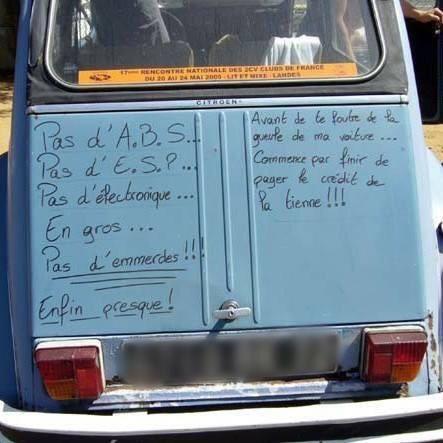 17ème RENCONTRE NATIONALE DES 2CV CLUBS DE FRANCE
DU 20 AU 24 MAI 2009 - LIT ET MIXE - LANDES
CITROËN
Pas d'A.B.S...
Pas d'E.S.P...
Pas d'électronique...
En gros ...
Pas d'emmerdes !!!
Enfin presque !
Avant de te foutre de la
gueule de ma voiture ...
Commence par finir de
payer le crédit de
la tienne !!!